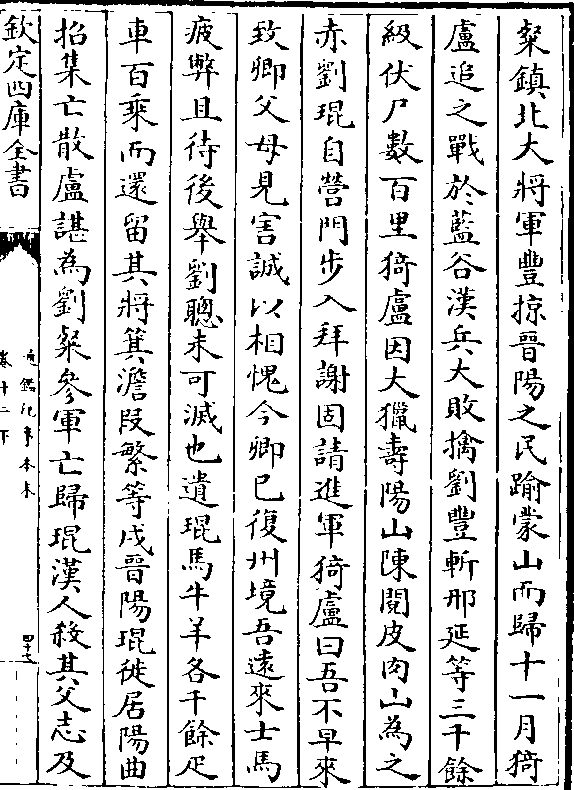 粲鎮北大將軍豐掠晉陽之民踰蒙山而歸十一月猗
盧追之戰於藍谷漢兵大敗擒劉豐斬邢延等三千餘
級伏尸數百里猗盧因大獵壽陽山陳閱皮肉山為之
赤劉琨自營門步入拜謝固請進軍猗盧曰吾不早來
致卿父母見害誠以相愧今卿已復州境吾遠來士馬
疲弊且待後舉劉聰未可滅也遺琨馬牛羊各千餘疋
車百乘而還留其將箕澹段繁等戍晉陽琨徙居陽曲
招集亡散盧諶為劉粲參軍亡歸琨漢人殺其父志及
欽定四庫全書
通鑑紀事本末
卷十二下